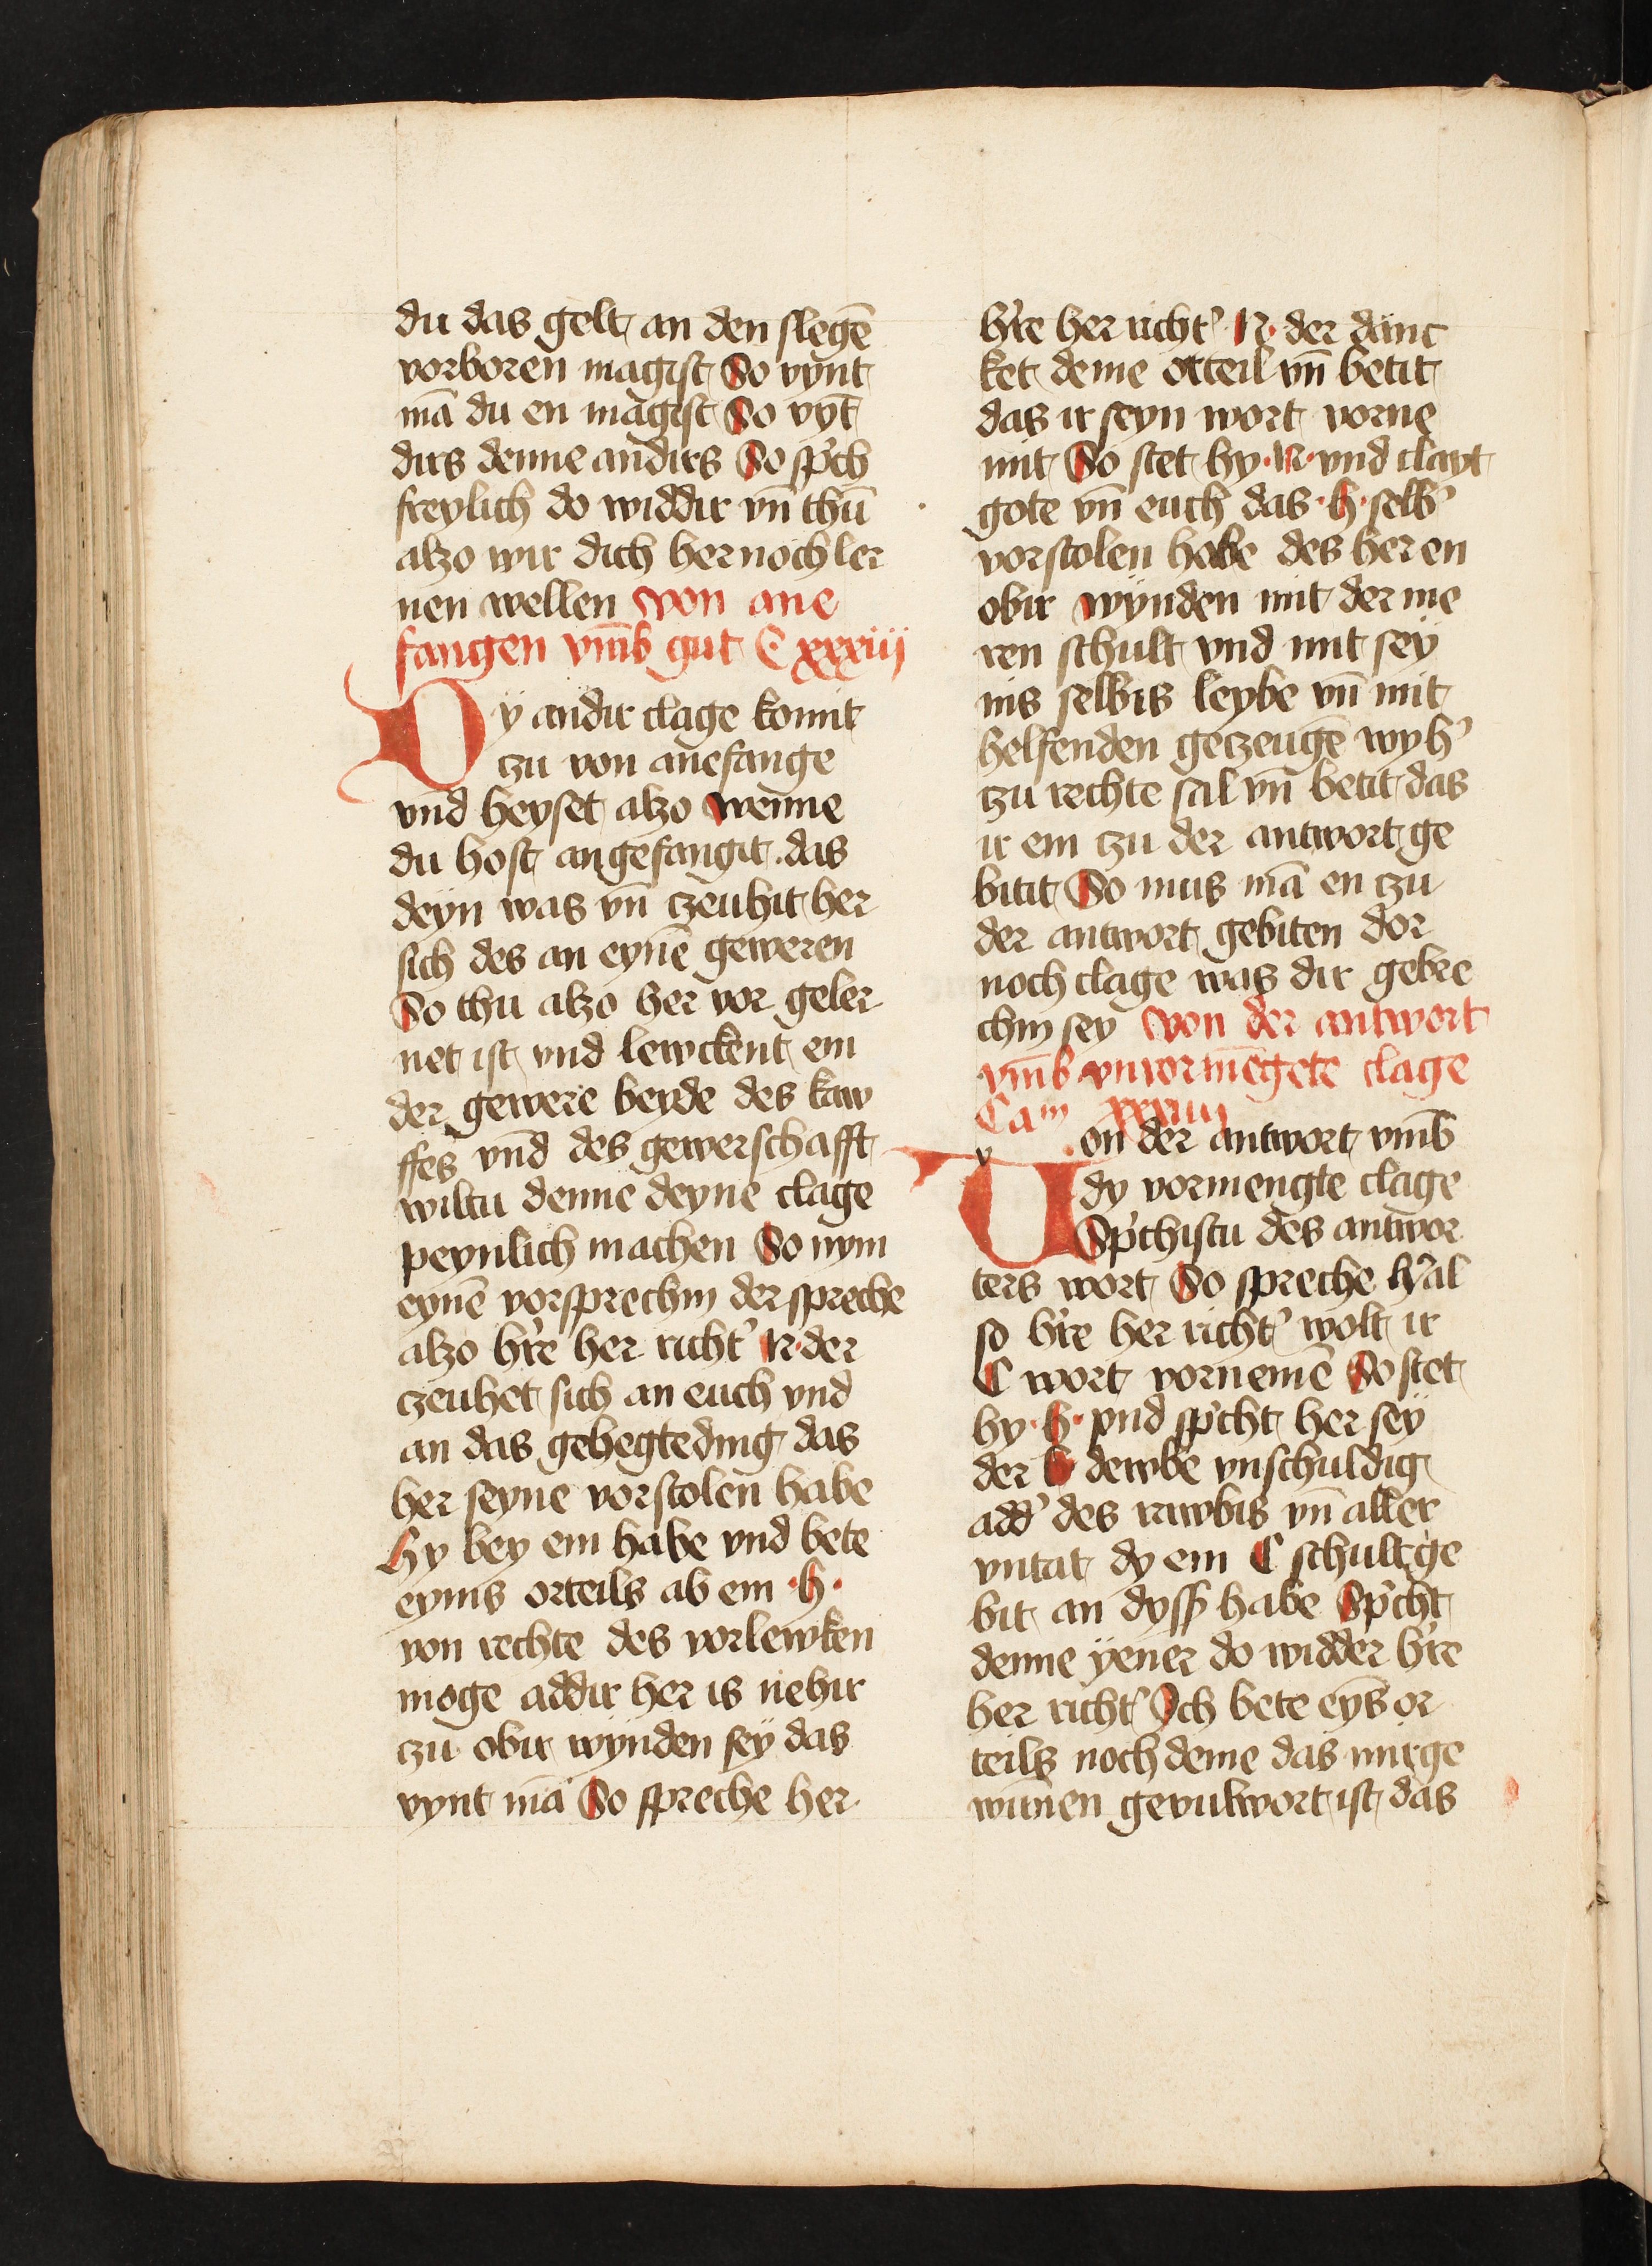 du das gelt an den slegē
vorboren magist So vynt
mā du en magist So vyt̄
dirs denne andirs So sp̄ch
freylich do widdir vn̄ thū
alzo wir dich hernoch ler
nen wellen von ane
fangen vm̄b gut C xxxiij
Dy andir clage komit
czu von anefange
vnd heyset alzo wenne
du host angefangit das
deyn was vn̄ czeuhit her
sich des an eynē geweren
So thu alzo her vor geler
net ist vnd lewckent em
der gewere beyde des kaw
ffes vnd des gewerschafft
wiltu denne deyne clage
peynlich machen So nym
eynē vorsprechin der spreche
alzo h're her richt' N der
czeuhet sich an euch vnd
an das gehegteding das
her seyne vorstolen habe
hy bey em habe vnd bete
eynis orteils ab em ·h·
von rechte des vorlewken
moge addir her is nehir
czu obir wynden sey das
vynt mā So spreche her
h're her richt' N· der danc
ket deme orteil vn̄ betit
das ir seyn wort vorne
mit So stet hy·N·vnd clayt
gote vn̄ euch das ·h· selb'
vorstolen habe des her en
obir wynden mit der me
ren schult vnd mit sey
nis selbis leybe vn̄ mit
helfenden geczeugē wy h'
czu rechte sal vn̄ betit das
ir em czu der antwort ge
bitit So mus mā en czu
der antwort gebiten dor
noch clage was dir gebre
chin sey von der antwort
vm̄b vnvormēgete clage
Cam xxxiiij
Von der antwort vm̄b
dy vormengte clage
Sp'chistu des antwor
ters wort So spreche h' al
so h're her richt' wolt ir
C wort vornemē So stet
hy·h· vnd sp'cht her sey
der dewbe vnschuldig
add' des rawbis vn̄ aller
vntat dy em C schult ge
bit an dyss habe Sp'cht
denne yener do widder h're
her richt' Ich bete eyns or
teils noch deme das mir ge
wunnen gevulwort ist das